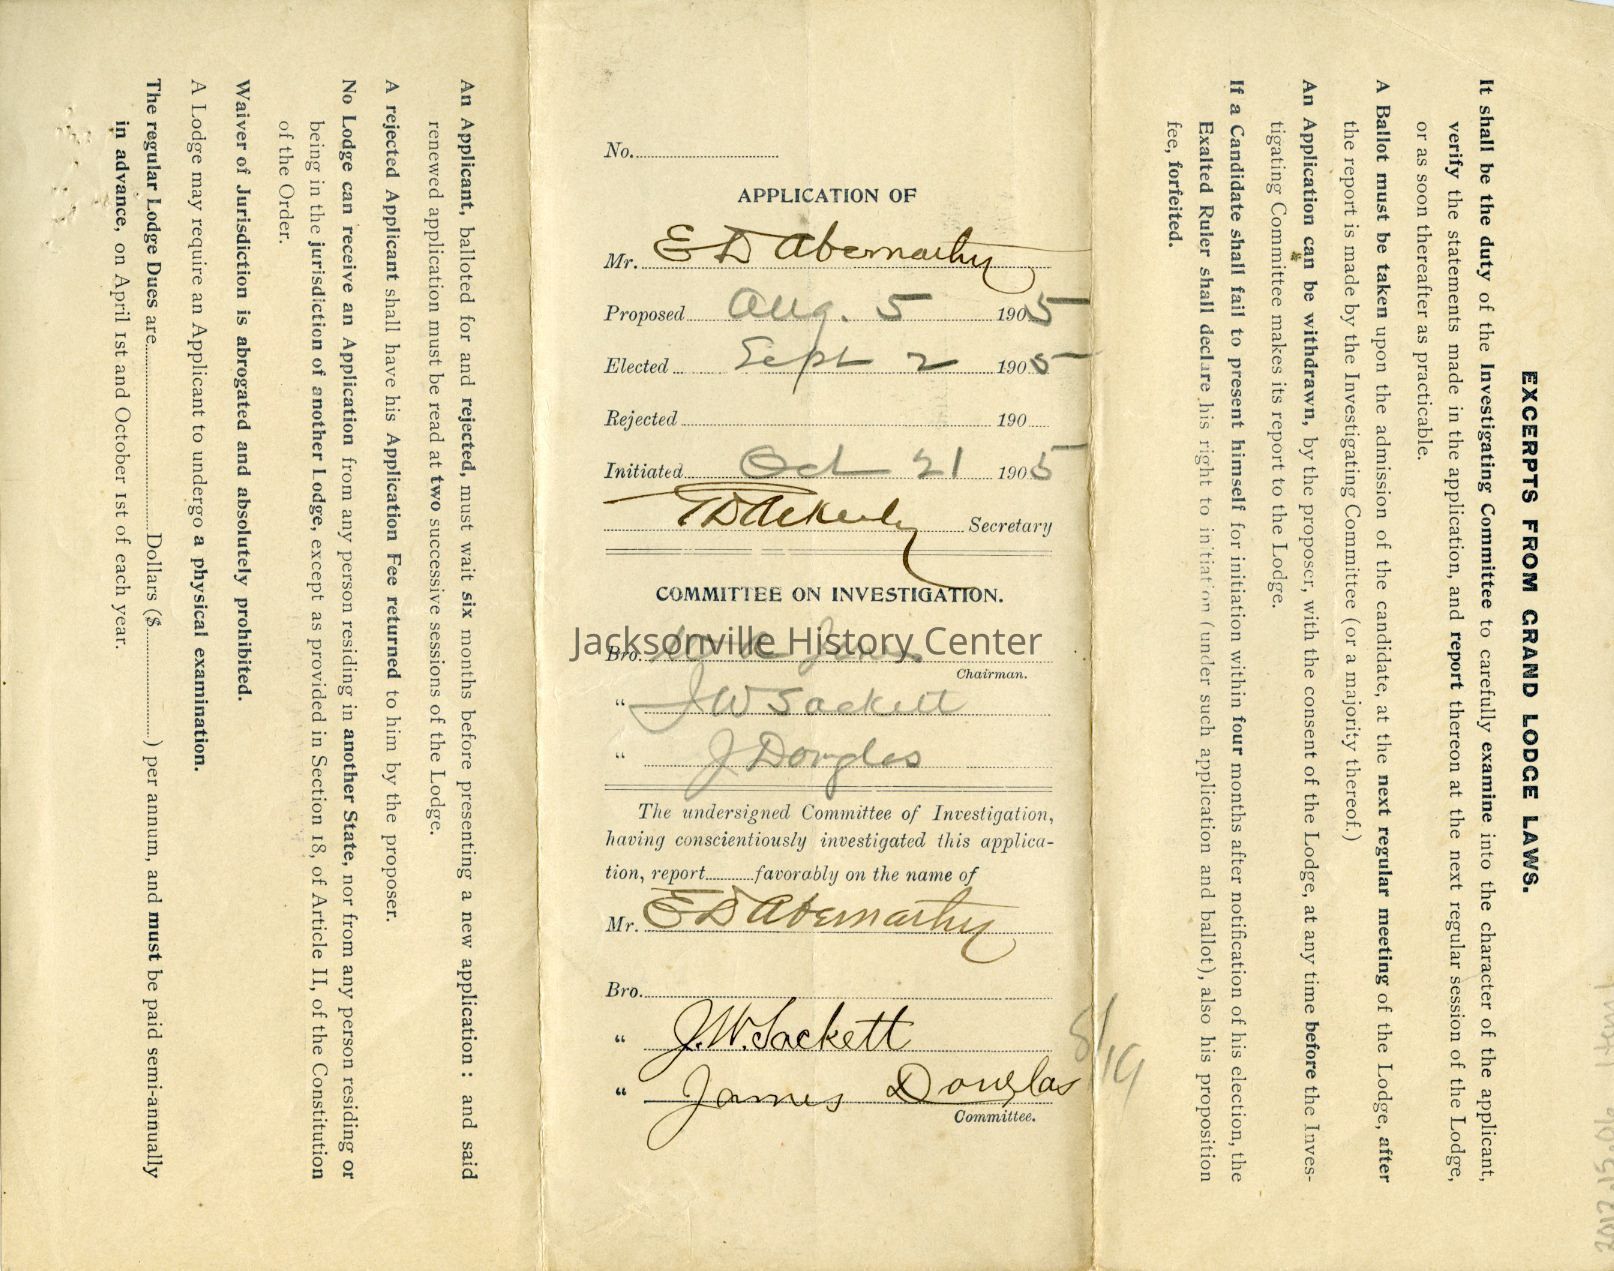 No.
APPLICATION OF
Mr. E D Abernathy
Proposed Aug. 5 1905
Elected Sept 2 1905
Rejected 190
Initiated Oct 21 1905
Secretary
COMMITTEE ON INVESTIGATION.
Jacksonville History Center
Bro.
Chairman.
" J W Sackett
" J Douglas
The undersigned Committee of Investigation,
having conscientiously investigated this applica-
tion, report favorably on the name of
Mr. E D Abernathy
Bro.
" J. W. Sackett
" James Douglas
Committee.
8/19
EXCERPTS FROM GRAND LODGE LAWS.
It shall be the duty of the Investigating Committee to carefully examine into the character of the applicant,
verify the statements made in the application, and report thereon at the next regular session of the Lodge,
or as soon thereafter as practicable.
A Ballot must be taken upon the admission of the candidate, at the next regular meeting of the Lodge, after
the report is made by the Investigating Committee (or a majority thereof.)
An Application can be withdrawn, by the proposer, with the consent of the Lodge, at any time before the Inves-
tigating Committee makes its report to the Lodge.
If a Candidate shall fail to present himself for initiation within four months after notification of his election, the
Exalted Ruler shall declare his right to initiation (under such application and ballot), also his proposition
fee, forfeited.
An Applicant, balloted for and rejected, must wait six months before presenting a new application: and said
renewed application must be read at two successive sessions of the Lodge.
A rejected Applicant shall have his Application Fee returned to him by the proposer.
No Lodge can receive an Application from any person residing in another State, nor from any person residing or
being in the jurisdiction of another Lodge, except as provided in Section 18, of Article II, of the Constitution
of the Order.
Waiver of Jurisdiction is abrogated and absolutely prohibited.
A Lodge may require an Applicant to undergo a physical examination.
The regular Lodge Dues are Dollars ($ ) per annum, and must be paid semi-annually
in advance, on April 1st and October 1st of each year.